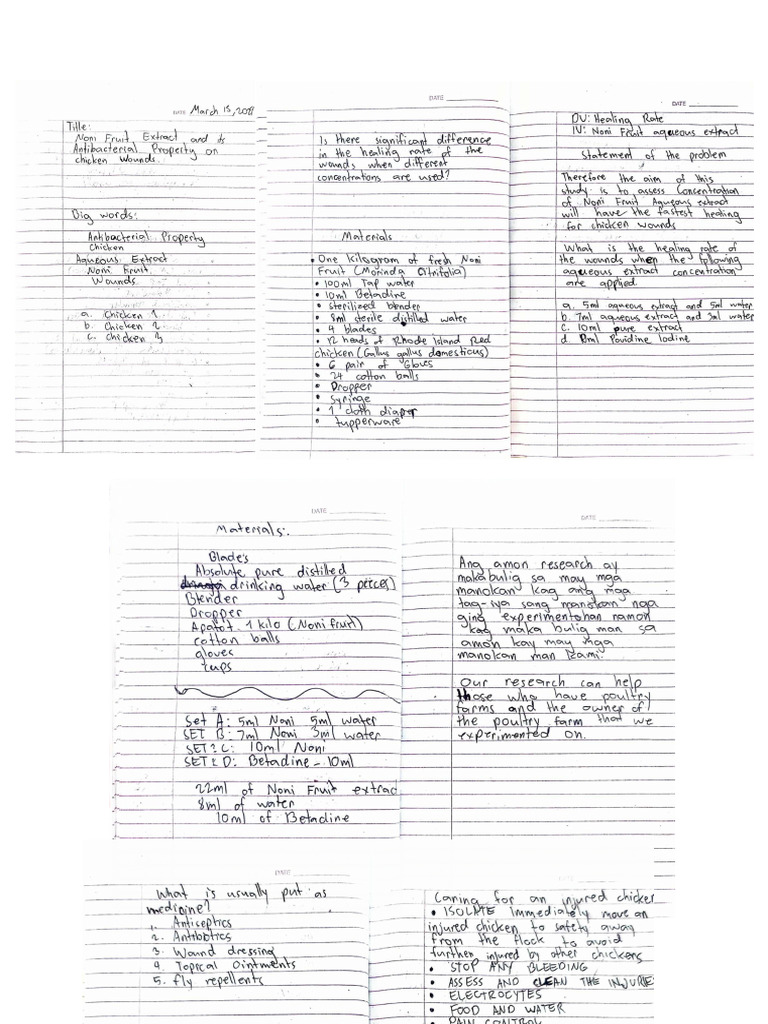 DATE March 15, 2018
Title:
Noni Fruit Extract and its
Antibacterial Property on
chicken Wounds.
Big words:
Antibacterial Property
Chicken
Aqueous Extract
Noni Fruit
Wounds
a. Chicken 1
b. Chicken 2
c. Chicken 3
DATE
Is there significant difference
in the healing rate of the
wounds when different
concentrations are used?
Materials
• One kilogram of fresh Noni
Fruit (Morinda Citrifolia)
• 100ml Tap water
• 10ml Betadine
• Sterilized blender
• 8ml sterile distilled water
• 4 blades
• 12 heads of Rhode Island Red
chicken (Gallus gallus domesticus)
• 6 pair of Gloves
• 24 cotton balls
• Dropper
• Syringe
• 1 cloth diaper
• tupperware
DATE
DV: Healing Rate
IV: Noni Fruit aqueous extract
Statement of the problem
Therefore the aim of this
study is to assess Concentration
of Noni Fruit Aqueous extract
will have the fastest healing
for chicken wounds
What is the healing rate of
the wounds when the following
aqueous extract concentration
are applied.
a. 5ml aqueous extract and 5ml water
b. 7ml aqueous extract and 3ml water
c. 10ml pure extract
d. Povidine Iodine
DATE
Materials:
Blades
Absolute pure distilled
drinking water (3 pieces)
Blender
Dropper
Apatot 1 kilo (Noni fruit)
cotton balls
gloves
cups
Set A: 5ml Noni 5ml water
SET B: 7ml Noni 3ml water
SET C: 10ml Noni
SET D: Betadine - 10ml
22ml of Noni Fruit extract
8ml of water
10ml of Betadine
DATE
Ang amon research ay
makabulig sa may mga
manokan kag ang mga
tag-iya sang manokan nga
ging experimentohan namon
kag maka bulig man sa
amon kay may mga
manokan man kami.
Our research can help
those who have poultry
farms and the owner of
the poultry farm that we
experimented on.
DATE
What is usually put as
medicine?
1. Antiseptics
2. Antibiotics
3. Wound dressing
4. Topical Ointments
5. fly repellents
DATE
Caring for an injured chicken
• ISOLATE Immediately move an
injured chicken to safety away
from the flock to avoid
further injured by other chickens
• STOP ANY BLEEDING
• ASSESS AND CLEAN THE INJURIE
• ELECTROCYTES
• FOOD AND WATER
• PAIN CONTROL